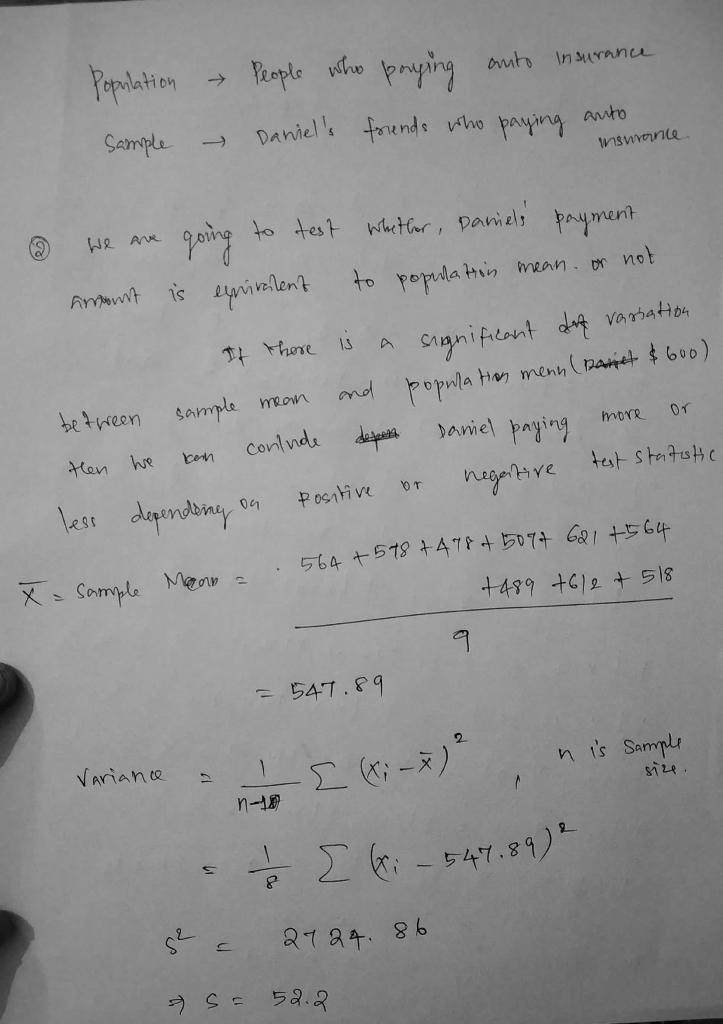 Population → People who paying auto insurance
Sample → Daniel's friends who paying auto insurance.
② we are going to test whether, Daniels' payment
Amount is equivalent to population mean. or not
If there is a significant variation
between sample mean and population mean ( $600)
then we can conlude Daniel paying more or
less depending on Positive or negative test statistic
x̄ = Sample Mean = 564 + 578 + 478 + 507 + 621 + 564
+489 +612 + 518
9
= 547.89
Variance = 1/(n-1) Σ (xᵢ - x̄)² , n is Sample size.
= 1/8 Σ (xᵢ - 547.89)²
s² = 2724.86
⇒ s = 52.2